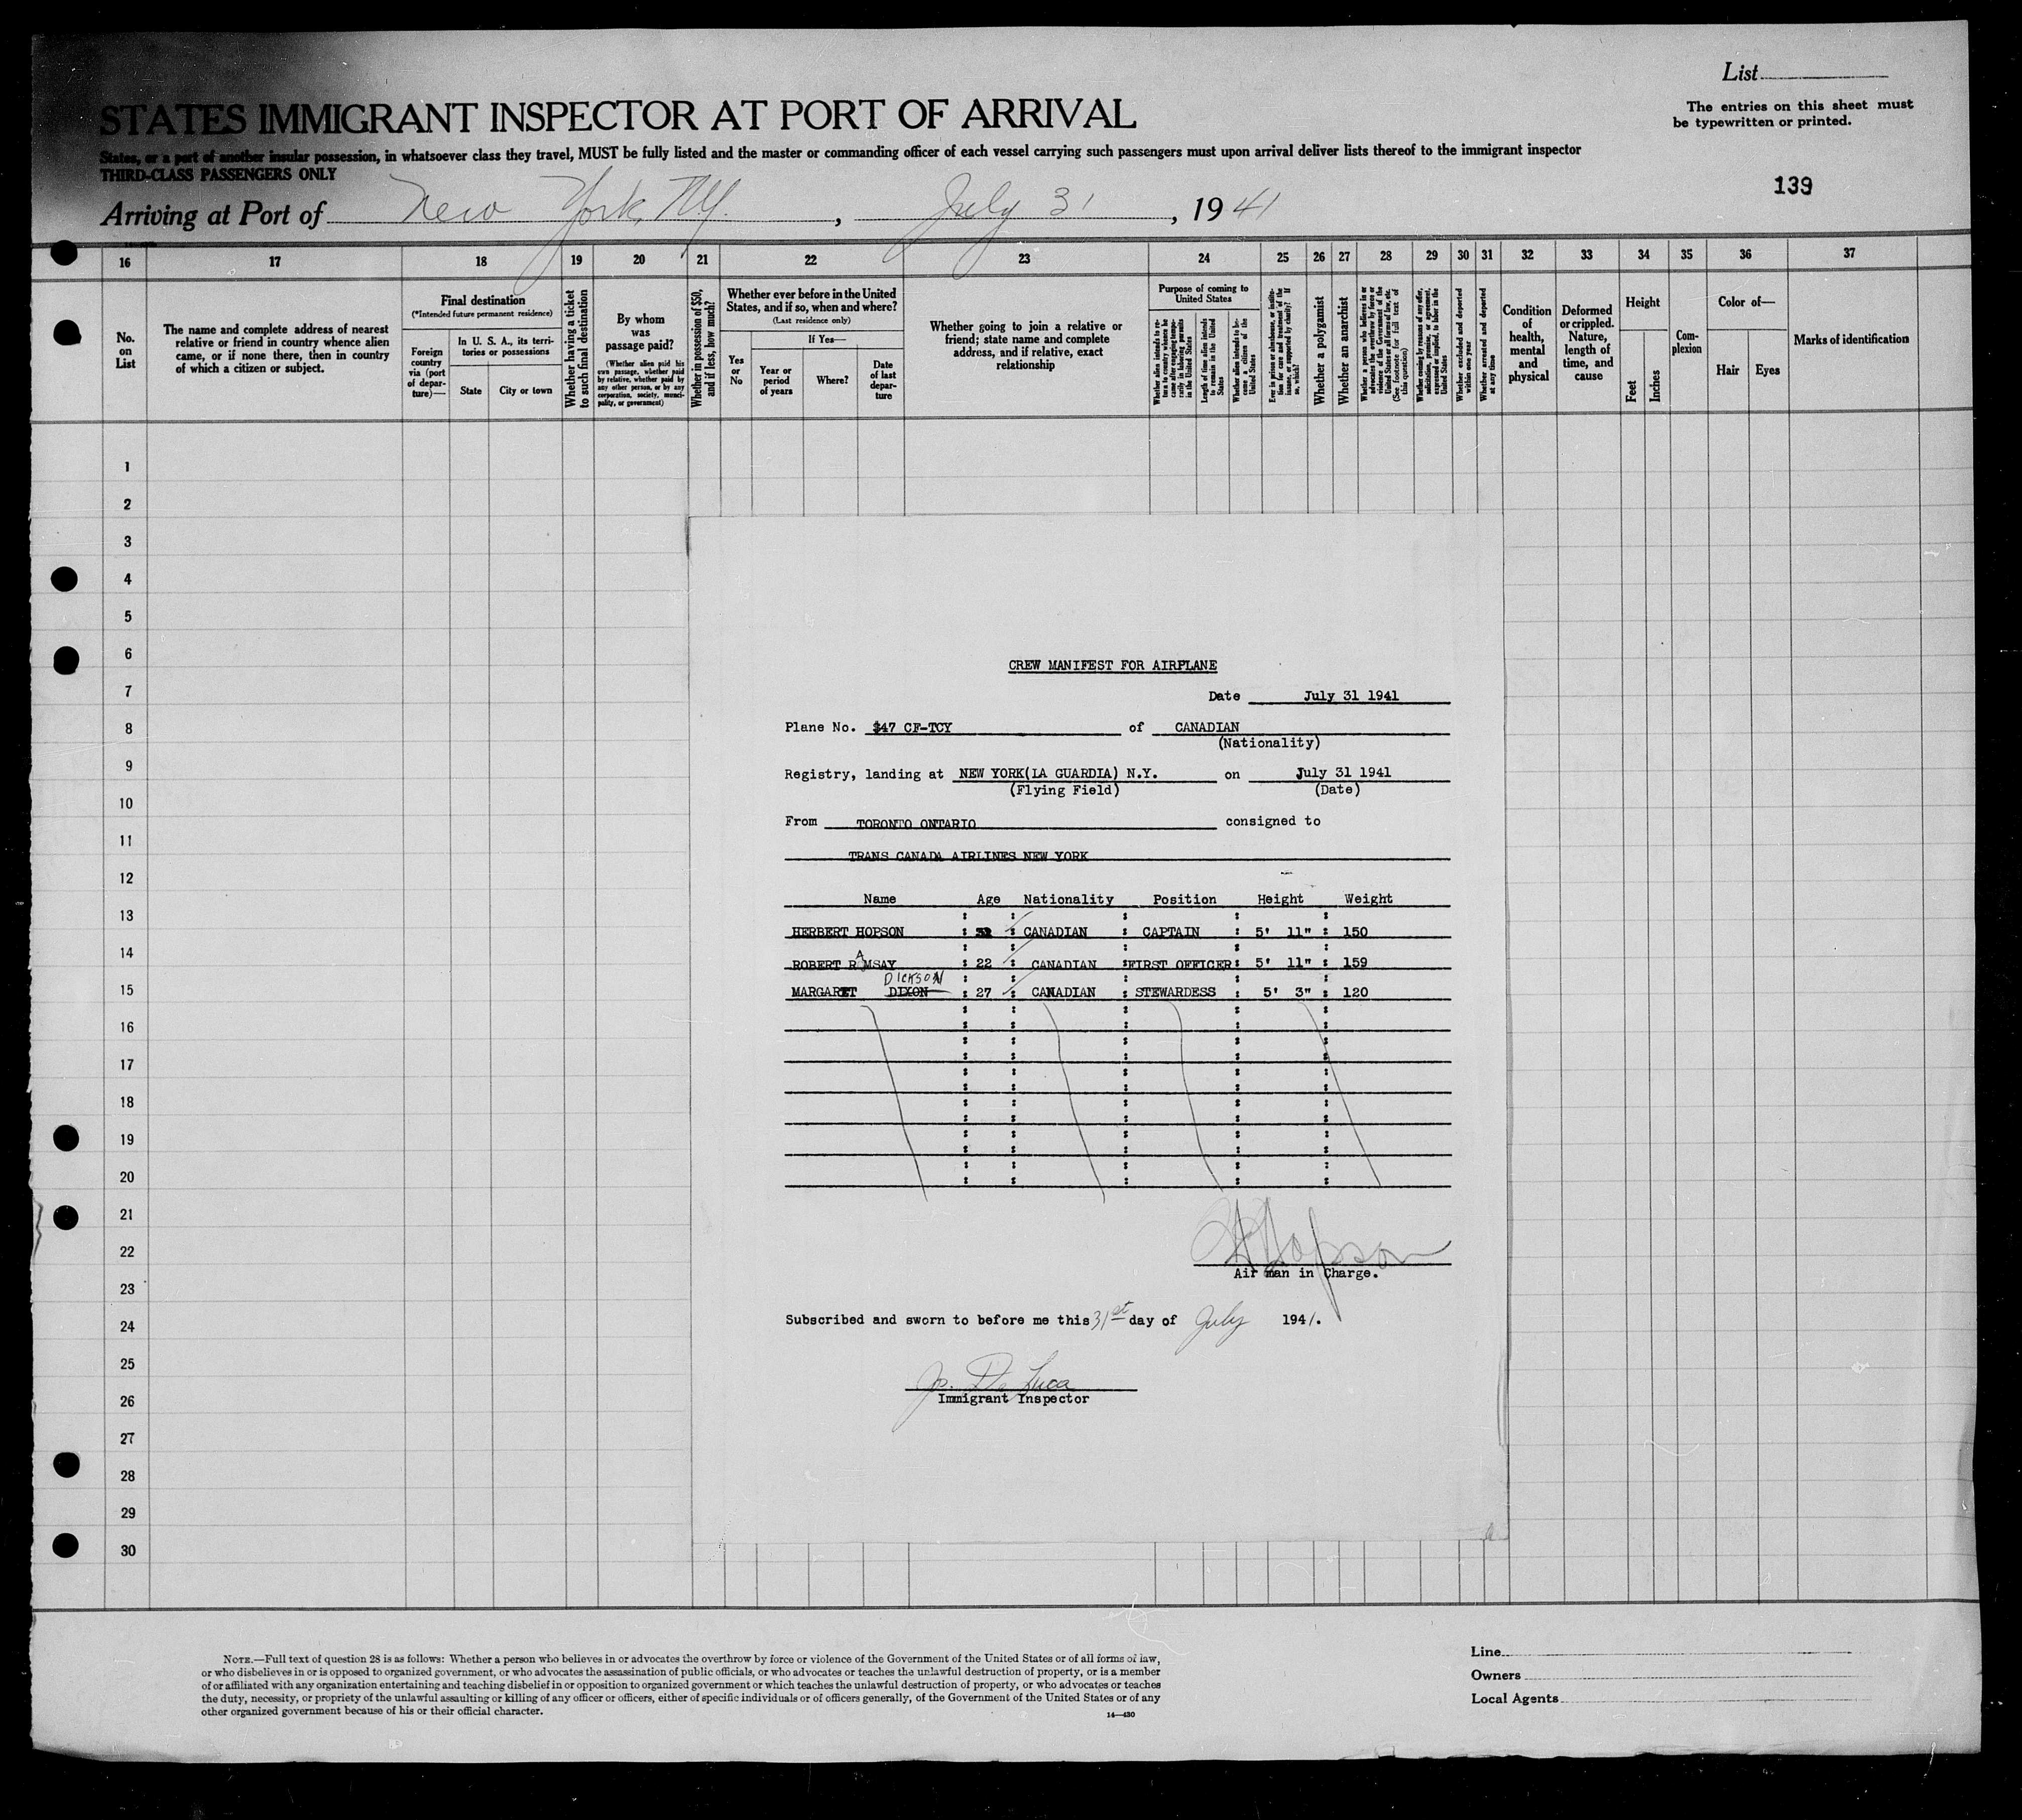 List
The entries on this sheet must
be typewritten or printed.
STATES IMMIGRANT INSPECTOR AT PORT OF ARRIVAL
States, or a part of another insular possession, in whatsoever class they travel, MUST be fully listed and the master or commanding officer of each vessel carrying such passengers must upon arrival deliver lists thereof to the immigrant inspector
THIRD-CLASS PASSENGERS ONLY
139
Arriving at Port of New York, NY. , July 31 , 1941
16 17 18 19 20 21 22 23 24 25 26 27 28 29 30 31 32 33 34 35 36 37
No. on List
The name and complete address of nearest relative or friend in country whence alien came, or if none there, then in country of which a citizen or subject.
Final destination
(*Intended future permanent residence)
Foreign country via (port of departure)—
In U. S. A., its territories or possessions
State
City or town
Whether having a ticket to such final destination
By whom was passage paid?
(Whether alien paid his own passage, whether paid by relative, whether paid by any other person, or by any corporation, society, municipality, or government)
Whether in possession of $50, and if less, how much?
Whether ever before in the United States, and if so, when and where?
(Last residence only)
Yes or No
If Yes—
Year or period of years
Where?
Date of last departure
Whether going to join a relative or friend; state name and complete address, and if relative, exact relationship
Purpose of coming to United States
Length of time alien intends to remain in the United States
Whether alien intends to become a citizen of the United States
Whether a polygamist
Whether an anarchist
Whether excluded and deported within one year
Whether arrested and deported at any time
Condition of health, mental and physical
Deformed or crippled. Nature, length of time, and cause
Height
Feet
Inches
Complexion
Color of—
Hair
Eyes
Marks of identification
1
2
3
4
5
6
7
8
9
10
11
12
13
14
15
16
17
18
19
20
21
22
23
24
25
26
27
28
29
30
CREW MANIFEST FOR AIRPLANE
Date July 31 1941
Plane No. $47 CF-TCY of CANADIAN
(Nationality)
Registry, landing at NEW YORK(LA GUARDIA) N.Y. on July 31 1941
(Flying Field) (Date)
From TORONTO ONTARIO consigned to
TRANS CANADA AIRLINES NEW YORK
Name Age Nationality Position Height Weight
HERBERT HOPSON : : CANADIAN : CAPTAIN : 5' 11" : 150
ROBERT RAMSAY : 22 : CANADIAN :FIRST OFFICER: 5' 11" : 159
DICKSON
MARGARET DIXON : 27 : CANADIAN : STEWARDESS : 5' 3" : 120
H Hopson
Air man in Charge.
Subscribed and sworn to before me this 31st day of July 1941.
Jo. De Luca
Immigrant Inspector
NOTE.—Full text of question 28 is as follows: Whether a person who believes in or advocates the overthrow by force or violence of the Government of the United States or of all forms of law,
or who disbelieves in or is opposed to organized government, or who advocates the assassination of public officials, or who advocates or teaches the unlawful destruction of property, or is a member
of or affiliated with any organization entertaining and teaching disbelief in or opposition to organized government or which teaches the unlawful destruction of property, or who advocates or teaches
the duty, necessity, or propriety of the unlawful assaulting or killing of any officer or officers, either of specific individuals or of officers generally, of the Government of the United States or of any
other organized government because of his or their official character.
14—430
Line
Owners
Local Agents